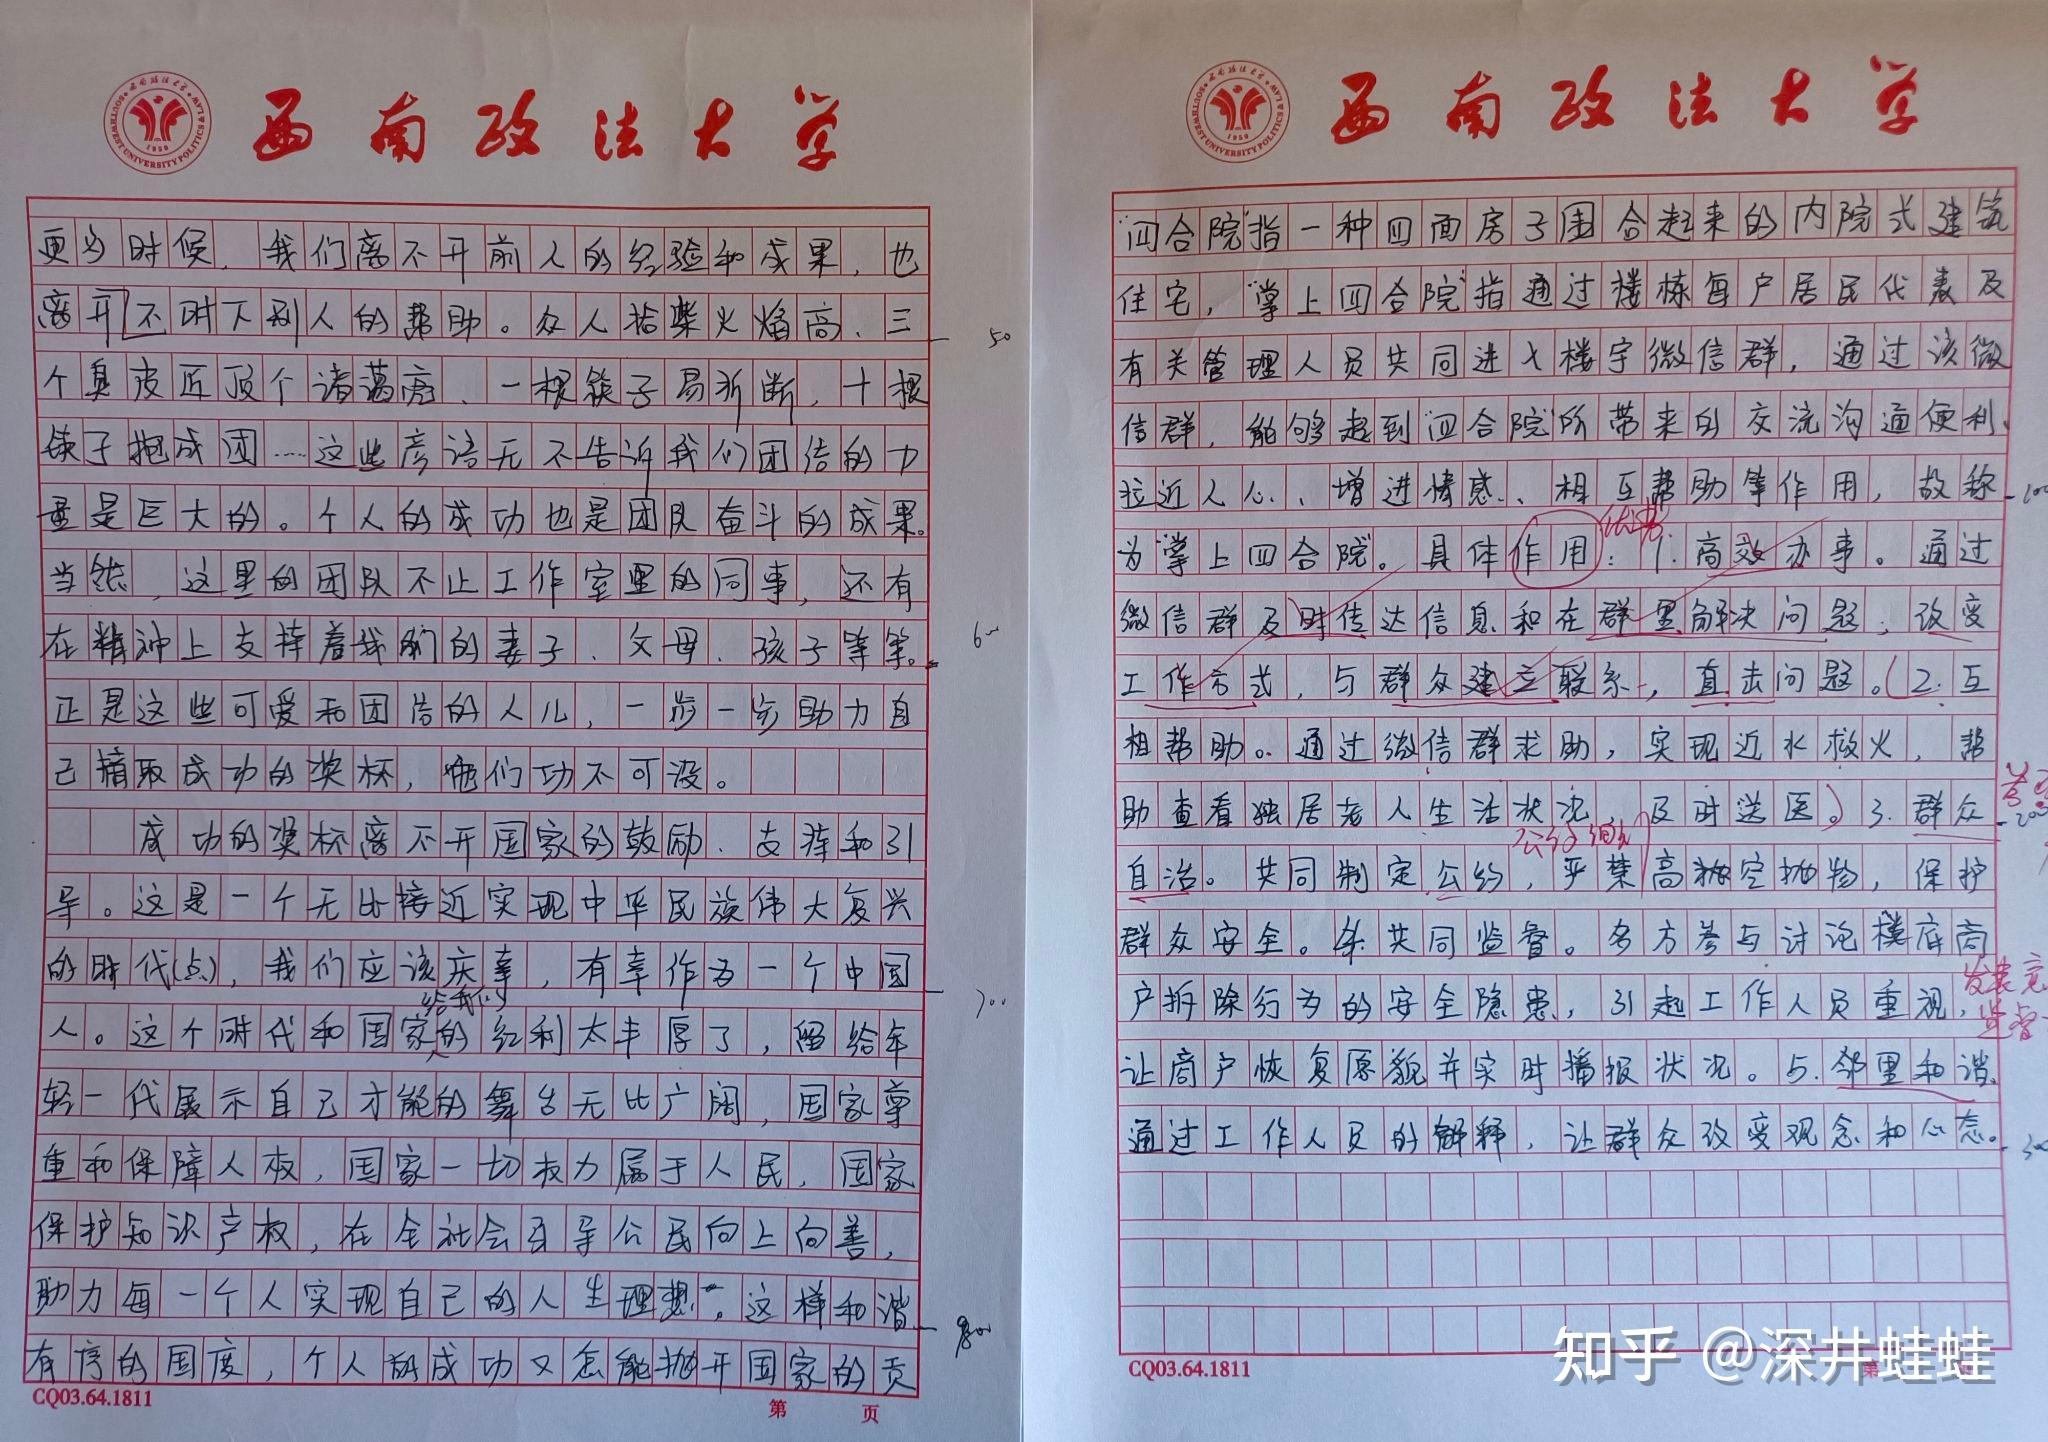 西南政法大学
SOUTHWEST UNIVERSITY POLITICS & LAW
1950
更多时候，我们离不开前人的经验和成果，也
离开不时下别人的帮助。众人拾柴火焰高、三
50
个臭皮匠顶个诸葛亮、一根筷子易折断，十根
筷子抱成团……这些彦语无不告诉我们团结的力
量是巨大的。个人的成功也是团队奋斗的成果。
当然，这里的团队不止工作室里的同事，还有
在精神上支持着我们的妻子、父母、孩子等等。
6
正是这些可爱和团结的人儿，一步一步助力自
己摘取成功的奖杯，他们功不可没。
成功的奖杯离不开国家的鼓励、支持和引
导。这是一个无比接近实现中华民族伟大复兴
的时代(点)，我们应该庆幸，有幸作为一个中国
700
给我们
人。这个时代和国家的红利太丰厚了，留给年
轻一代展示自己才能的舞台无比广阔，国家尊
重和保障人权，国家一切权力属于人民，国家
保护知识产权，在全社会引导公民向上向善，
助力每一个人实现自己的人生理想。这样和谐
800
有序的国度，个人的成功又怎能抛开国家的贡
CQ03.64.1811
第 页
西南政法大学
SOUTHWEST UNIVERSITY POLITICS & LAW
1950
“四合院”指一种四面房子围合起来的内院式建筑
住宅，“掌上四合院”指通过楼栋每户居民代表及
有关管理人员共同进入楼宇微信群，通过该微
信群，能够起到“四合院”所带来的交流沟通便利、
拉近人心、增进情感、相互帮助等作用，故称
100
优势
为“掌上四合院”。具体作用：1.高效办事。通过
微信群及时传达信息和在群里解决问题，改变
工作方式，与群众建立联系，直击问题。(2.互
相帮助。通过微信群求助，实现近水救火，帮
助查看独居老人生活状况，及时送医。)3.群众
200
公约
自治。共同制定公约，严禁高抛空抛物，保护
群众安全。4.共同监督。多方参与讨论楼底商
户拆除行为的安全隐患，引起工作人员重视，
发表
监督
让商户恢复原貌并实时播报状况。5.邻里和谐。
通过工作人员的解释，让群众改变观念和心态。
300
CQ03.64.1811
第
知乎 @深井蛙蛙